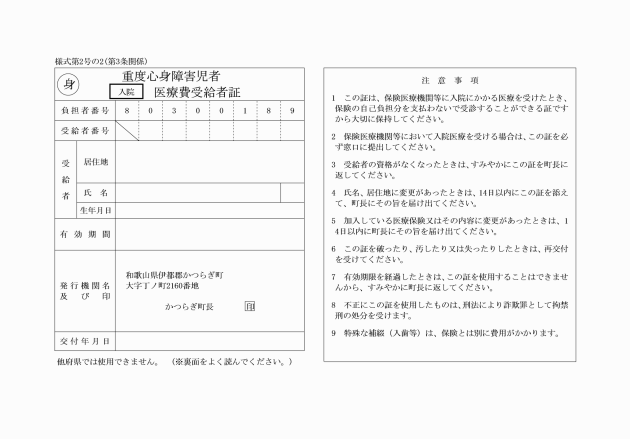 様式第2号の2(第3条関係)
身
重度心身障害児者
入院 医療費受給者証
負担者番号 8 0 3 0 0 1 8 9
受給者番号
受給者
居住地
氏 名
生年月日
有効期間
発行機関名
及び印
和歌山県伊都郡かつらぎ町
大字丁ノ町2160番地
かつらぎ町長 印
交付年月日
他府県では使用できません。 (※裏面をよく読んでください。)
注意事項
1 この証は、保険医療機関等に入院にかかる医療を受けたとき、
保険の自己負担分を支払わないで受診することができる証です
から大切に保持してください。
2 保険医療機関等において入院医療を受ける場合は、この証を必
ず窓口に提出してください。
3 受給者の資格がなくなったときは、すみやかにこの証を町長に
返してください。
4 氏名、居住地に変更があったときは、14日以内にこの証を添え
て、町長にその旨を届け出てください。
5 加入している医療保険又はその内容に変更があったときは、1
4日以内に町長にその旨を届け出てください。
6 この証を破ったり、汚したり又は失ったりしたときは、再交付
を受けてください。
7 有効期限を経過したときは、この証を使用することはできませ
んから、すみやかに町長に返してください。
8 不正にこの証を使用したものは、刑法により詐欺罪として拘禁
刑の処分を受けます。
9 特殊な補綴(入歯等)は、保険とは別に費用がかかります。